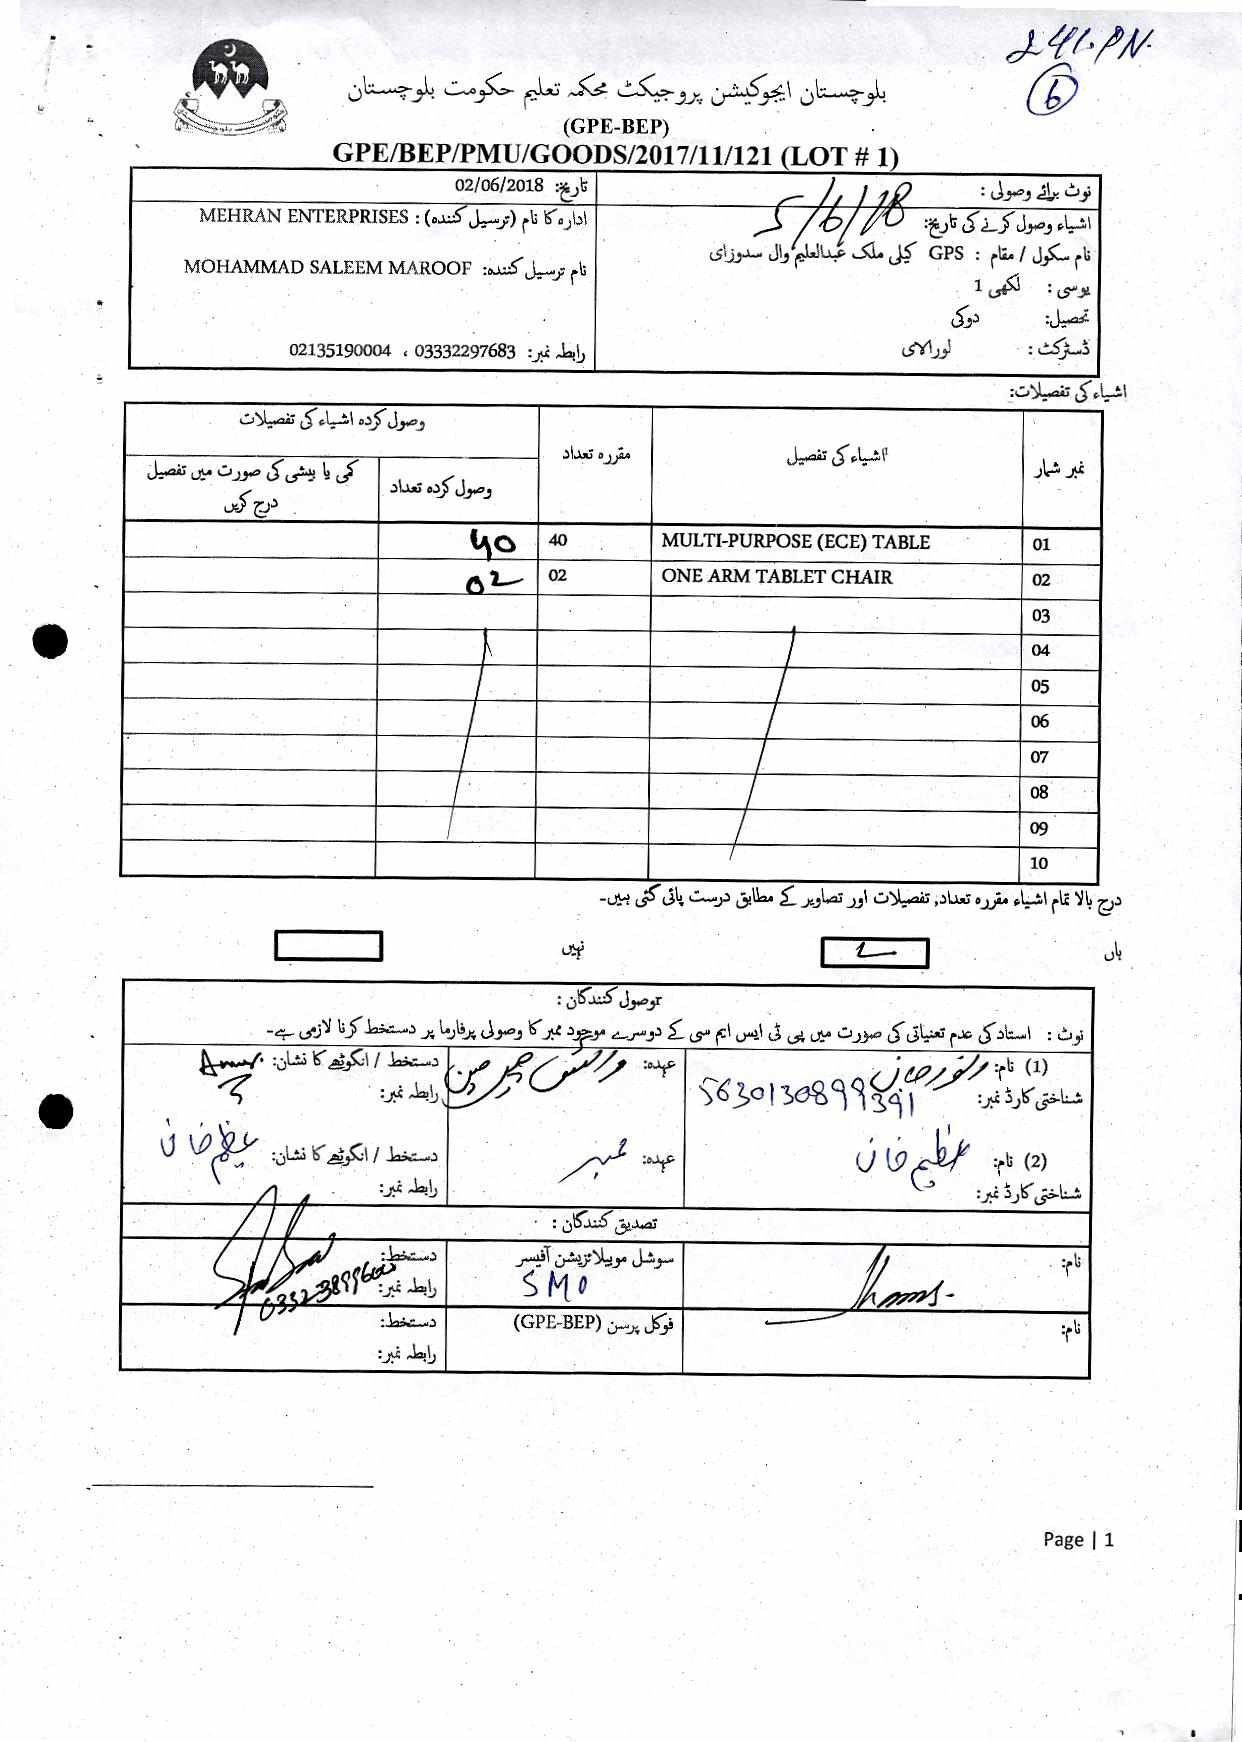 241.PN.
6
بلوچستان ایجوکیشن پروجیکٹ محکمہ تعلیم حکومت بلوچستان
(GPE-BEP)
GPE/BEP/PMU/GOODS/2017/11/121 (LOT # 1)
نوٹ برائے وصولی :
اشیاء وصول کرنے کی تاریخ: 5/6/18
نام سکول / مقام : GPS کیلی ملک عبدالعلیم وال سدوزای
یوسی: لکھی 1
تحصیل: دوکی
ڈسٹرکٹ: لورالای
تاریخ: 02/06/2018
ادارہ کا نام (ترسیل کنندہ) : MEHRAN ENTERPRISES
نام ترسیل کنندہ: MOHAMMAD SALEEM MAROOF
رابطہ نمبر: 03332297683 ، 02135190004
اشیاء کی تفصیلات:
نمبر شمار اشیاء کی تفصیل مقررہ تعداد وصول کردہ اشیاء کی تفصیلات
وصول کردہ تعداد کمی یا بیشی کی صورت میں تفصیل
درج کریں
01 MULTI-PURPOSE (ECE) TABLE 40 40
02 ONE ARM TABLET CHAIR 02 02
03
04
05
06
07
08
09
10
درج بالا تمام اشیاء مقررہ تعداد, تفصیلات اور تصاویر کے مطابق درست پائی گئی ہیں۔
ہاں نہیں
وصول کنندگان :
نوٹ : استاد کی عدم تعنیاتی کی صورت میں پی ٹی ایس ایم سی کے دوسرے موجود ممبر کا وصولی پرفارما پر دستخط کرنا لازمی ہے۔
(1) نام: عہدہ: دستخط / انگوٹھے کا نشان:
شناختی کارڈ نمبر: 5630130899391 رابطہ نمبر:
(2) نام: عظیم خان عہدہ: ممبر دستخط / انگوٹھے کا نشان: عظیم خان
شناختی کارڈ نمبر: رابطہ نمبر:
تصدیق کنندگان :
نام: سوشل موبیلائزیشن آفیسر دستخط:
SMO رابطہ نمبر:
نام: فوکل پرسن (GPE-BEP) دستخط:
رابطہ نمبر:
Page | 1